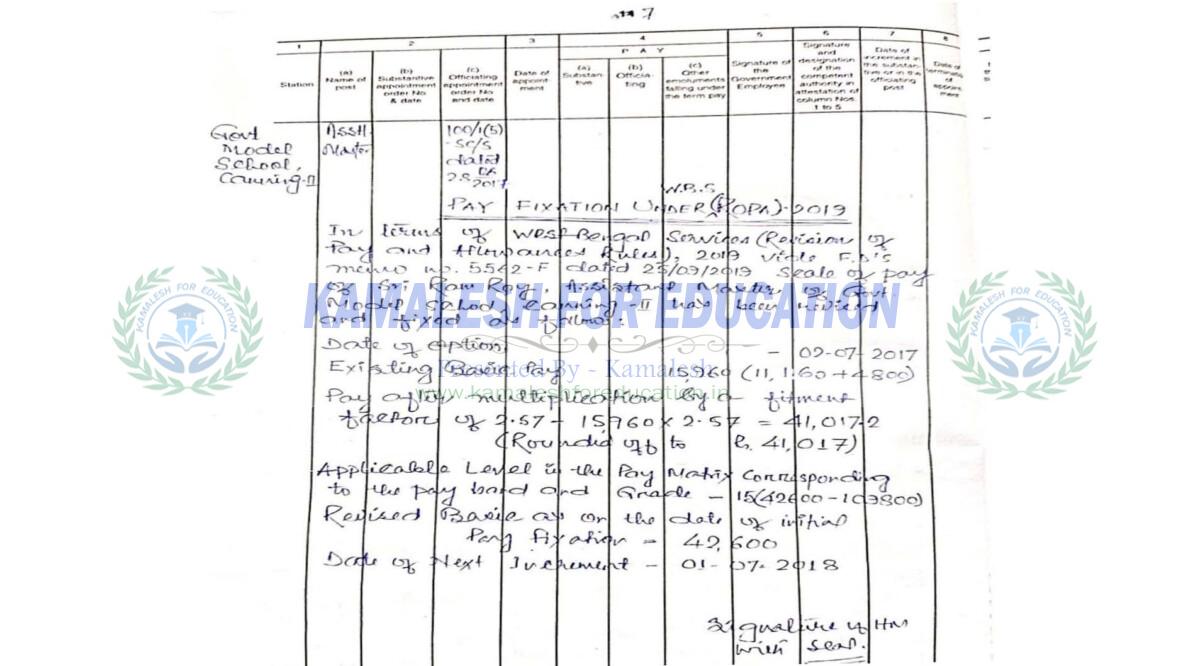 7
1 2 3 4 5 6 7 8
P A Y
Station
(a) Name of post
(b) Substantive appointment order No & date
(c) Officiating appointment order No and date
Date of appoint ment
(a) Substan- tive
(b) Officia- ting
(c) Other emoluments falling under the term pay
Signature of the Government Employee
Signature and designation of the competent authority in attestation of column Nos. 1 to 5
Date of increment in the substan- tive or in the officiating post
Date of
Govt
Model
School,
Canning-II
Asstt.
Master
100/1(5)
-SC/S
dated
28
2017
W.B.S
PAY FIXATION UNDER (ROPA)-2019
In terms of West Bengal Services (Revision of
Pay and Allowances Rules), 2019 vide F.D'S
memo no. 5562-F dated 25/09/2019 Scale of pay
of Sri Ram Roy, Assistant Master of Govt
Model School, Canning-II has been revised
and fixed as follows:
Date of option - 02-07-2017
Existing Basic Pay 15,960 (11,160+4800)
Pay after multiplication by a fitment
factor of 2.57 - 15960 x 2.57 = 41,017.2
(Rounded off to Rs. 41,017)
Applicable Level in the Pay Matrix Corresponding
to the pay band and Grade - 15(42600-109800)
Revised Basic as on the date of initial
Pay fixation = 42,600
Date of Next Increment - 01-07-2018
Signature of HM
with seal.
KAMALESH FOR EDUCATION
Presented By - Kamalesh
www.kamaleshforeducation.in
KAMALESH FOR EDUCATION
KAMALESH FOR EDUCATION